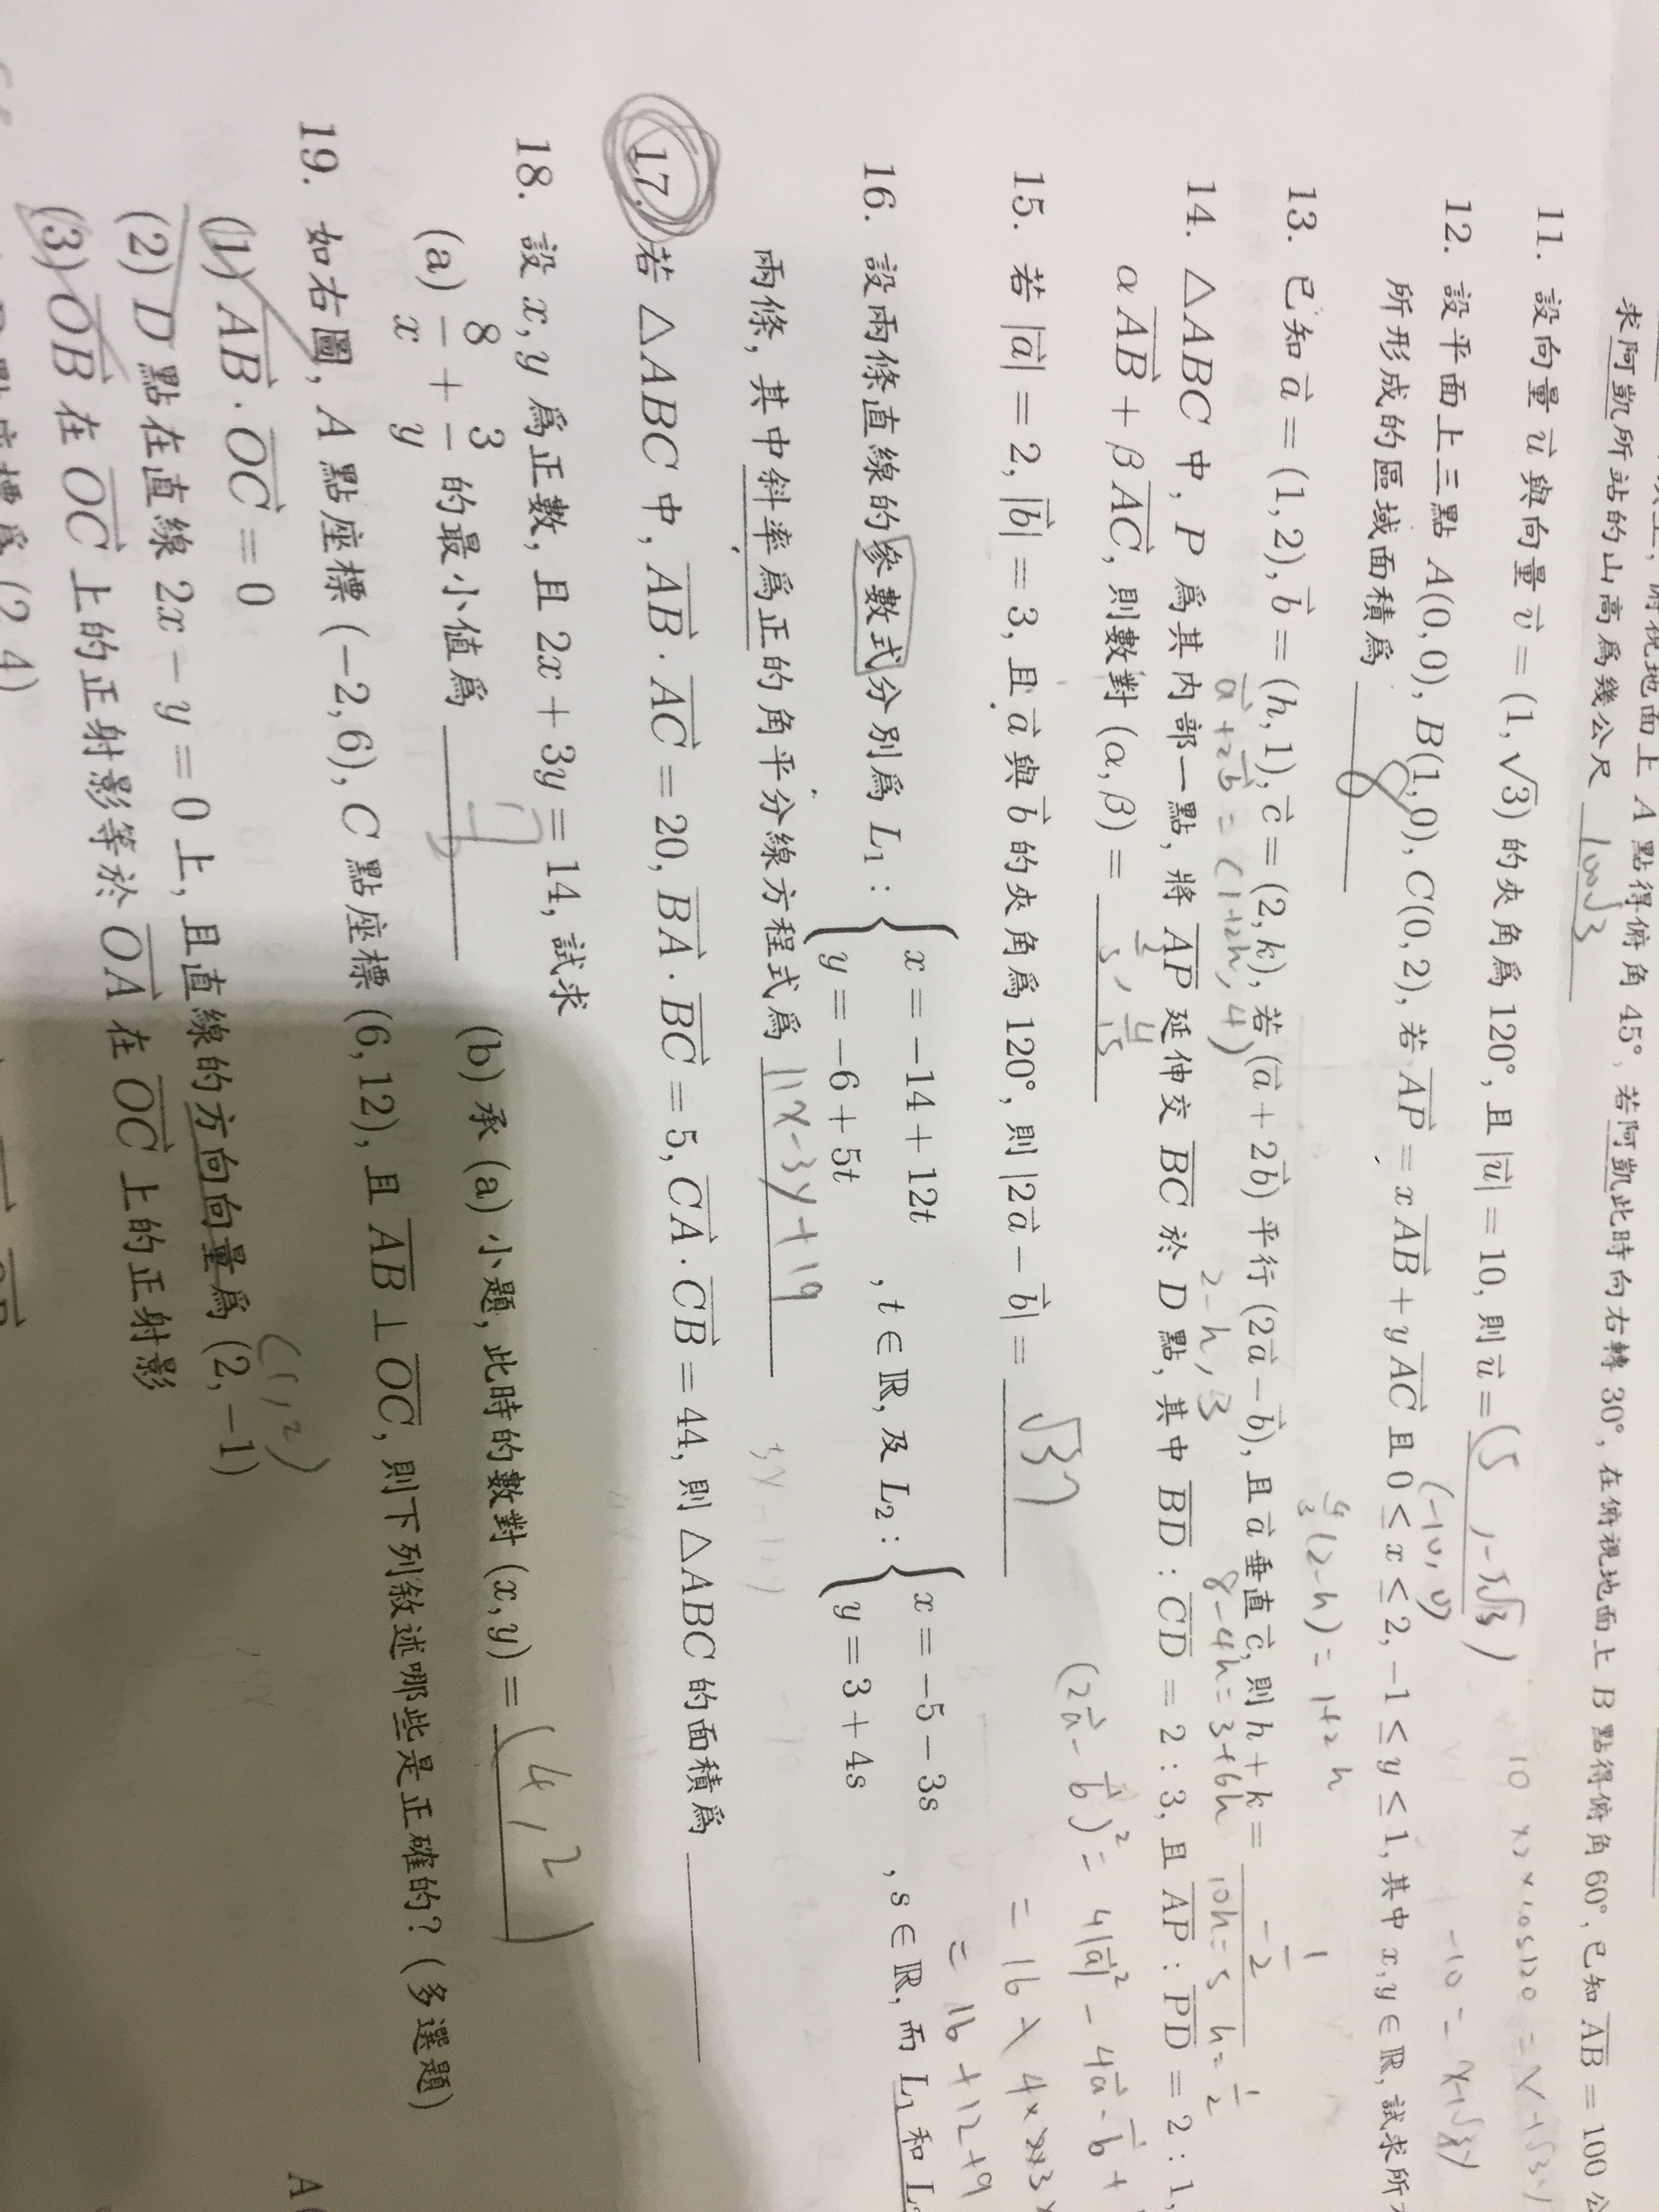 求阿凱所站的山高爲幾公尺 100√3
俯視地面上 A 點得俯角 45°, 若阿凱此時向右轉 30°, 在俯視地面上 B 點得俯角 60°, 已知 AB = 100 公
11. 設向量 u⃗ 與向量 v⃗ = (1, √3) 的夾角爲 120°, 且 |u⃗| = 10, 則 u⃗ = (5, -5√3)
(-10, 0)
12. 設平面上三點 A(0, 0), B(1, 0), C(0, 2), 若 AP⃗ = xAB⃗ + yAC⃗ 且 0 ≤ x ≤ 2, −1 ≤ y ≤ 1, 其中 x, y ∈ ℝ, 試求所
所形成的區域面積爲 8
13. 已知 a⃗ = (1, 2), b⃗ = (h, 1), c⃗ = (2, k), 若 (a⃗ + 2b⃗) 平行 (2a⃗ − b⃗), 且 a⃗ 垂直 c⃗, 則 h + k = -1/2
a⃗+2b⃗ = (1+2h, 4)
2-h, 3
4/3(2-h) = 1+2h
8-4h = 3+6h
10h=5 h=1/2
14. △ABC 中, P 爲其內部一點, 將 AP 延伸交 BC 於 D 點, 其中 BD : CD = 2 : 3, 且 AP : PD = 2 : 1,
αAB⃗ + βAC⃗, 則數對 (α, β) = 2/5, 4/15
15. 若 |a⃗| = 2, |b⃗| = 3, 且 a⃗ 與 b⃗ 的夾角爲 120°, 則 |2a⃗ − b⃗| = √37
(2a⃗-b⃗)² = 4|a⃗|² - 4a⃗·b⃗ +
= 16 + 12 + 9
16. 設兩條直線的參數式分別爲 L₁ : { x = −14 + 12t
y = −6 + 5t , t ∈ ℝ, 及 L₂ : { x = −5 − 3s
y = 3 + 4s , s ∈ ℝ, 而 L₁ 和 L
兩條, 其中斜率爲正的角平分線方程式爲 11x-3y+19
17. 若 △ABC 中, AB⃗ · AC⃗ = 20, BA⃗ · BC⃗ = 5, CA⃗ · CB⃗ = 44, 則 △ABC 的面積爲
18. 設 x, y 爲正數, 且 2x + 3y = 14, 試求
(a) 8/x + 3/y 的最小值爲
(b) 承 (a) 小題, 此時的數對 (x, y) = (4, 2)
19. 如右圖, A 點座標 (−2, 6), C 點座標 (6, 12), 且 AB ⊥ OC, 則下列敘述哪些是正確的? (多選題)
(1) AB⃗ · OC⃗ = 0
(2) D 點在直線 2x − y = 0 上, 且直線的方向向量爲 (2, −1)
(1, 2)
(3) OB⃗ 在 OC⃗ 上的正射影等於 OA⃗ 在 OC⃗ 上的正射影